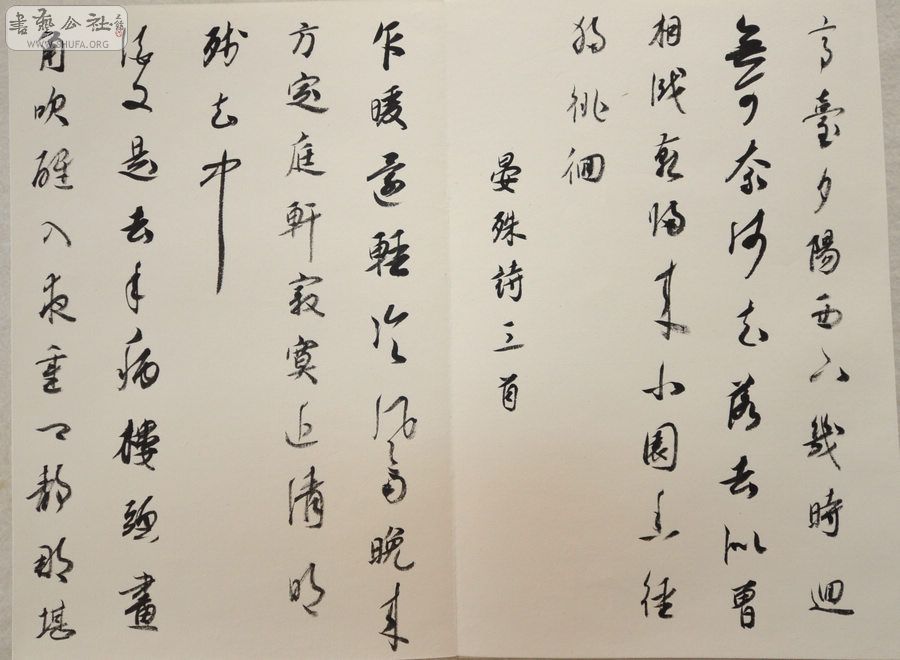 亭臺夕陽西下幾時迴
無可奈何花落去似曾
相識燕歸來小園香徑
獨徘徊
晏殊詩三首
乍暖還輕冷風雨晚來
方定庭軒寂寞近清明
殘花中
酒又是去年病樓頭畫
角吹醒入夜重門靜那堪
書藝公社
WWW.SHUFA.ORG